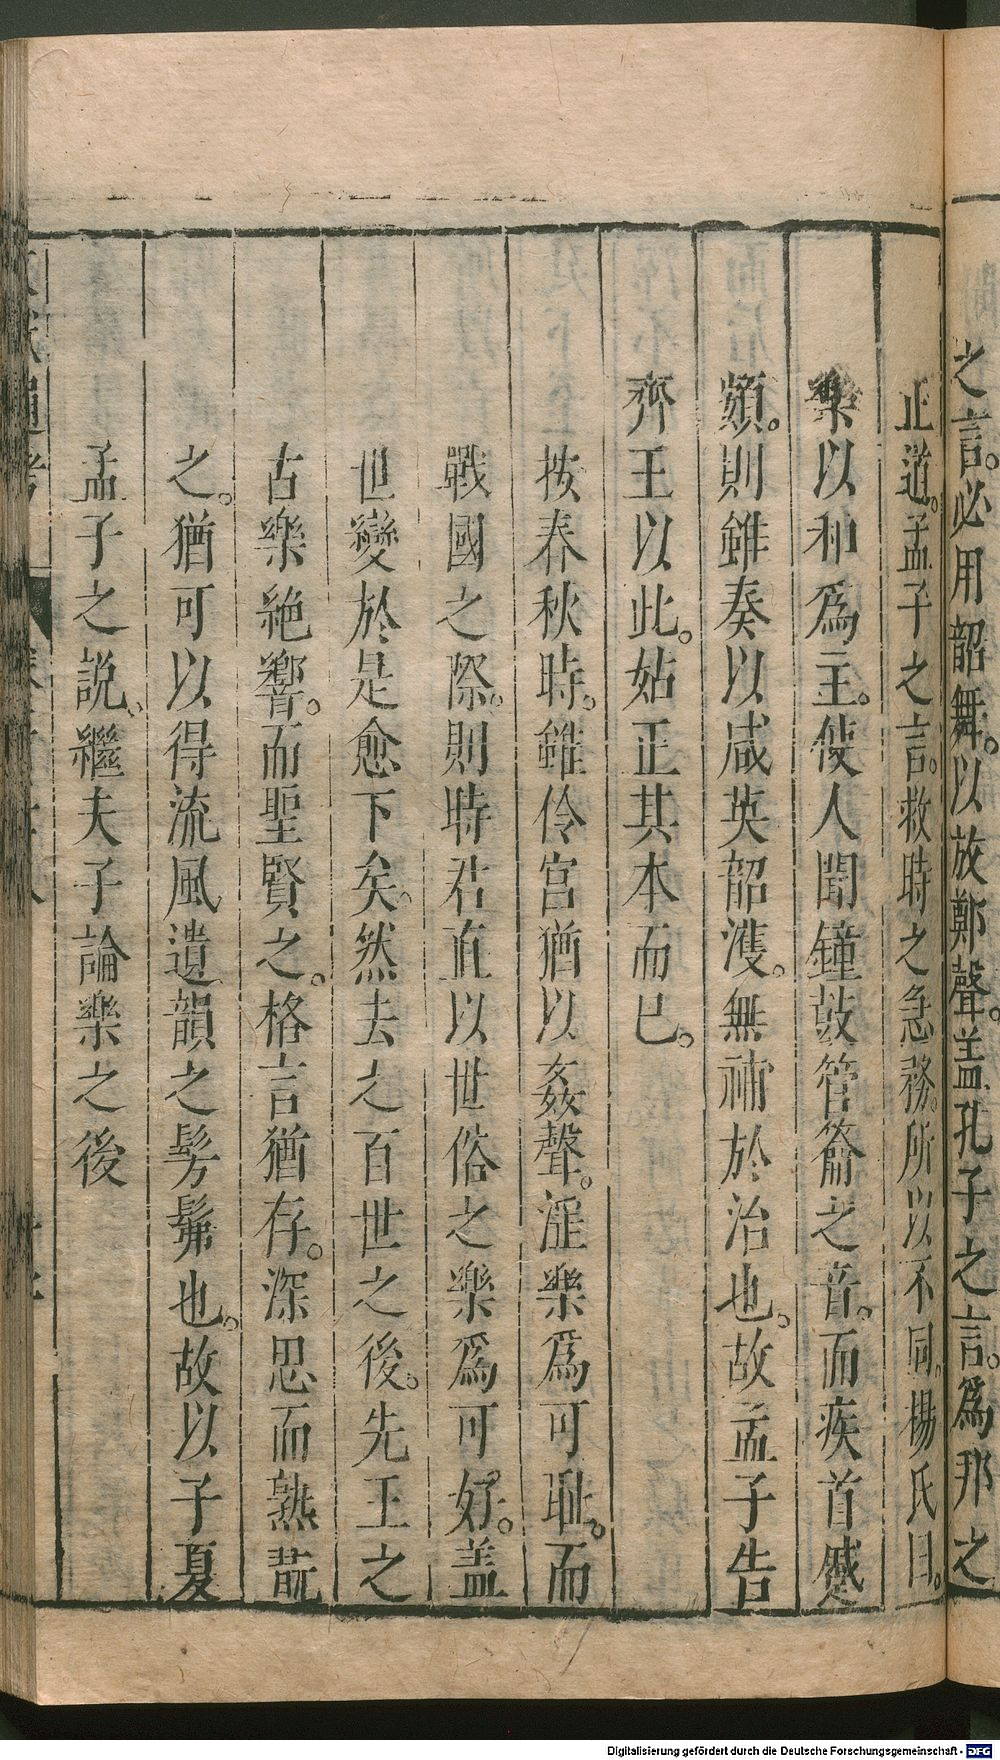 之言。必用韶舞。以放鄭聲。盖孔子之言。為邦之
正道。孟子之言。救時之急務。所以不同。楊氏曰。
樂以和爲主。使人聞鐘鼓管籥之音。而疾首蹙
頞。則雖奏以咸英韶濩。無補於治也。故孟子告
齊王以此。姑正其本而已。
按春秋時。雖伶官猶以姦聲。淫樂爲可耻。而
戰國之際。則時君直以世俗之樂爲可好。盖
世變於是愈下矣。然去之百世之後。先王之
古樂絶響。而聖賢之。格言猶存。深思而熟翫
之。猶可以得流風遺韻之髣髴也。故以子夏
孟子之説、繼夫子論樂之後
Digitalisierung gefördert durch die Deutsche Forschungsgemeinschaft - DFG